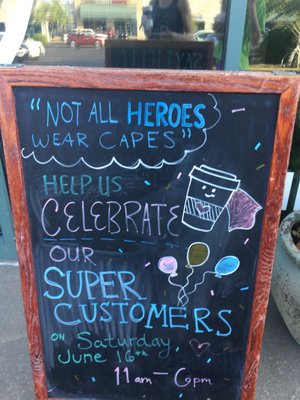 "NOT ALL HEROES
WEAR CAPES"
HELP US
CELEBRATE
OUR
SUPER
CUSTOMERS
ON Saturday,
June 16th,
11am - 6pm